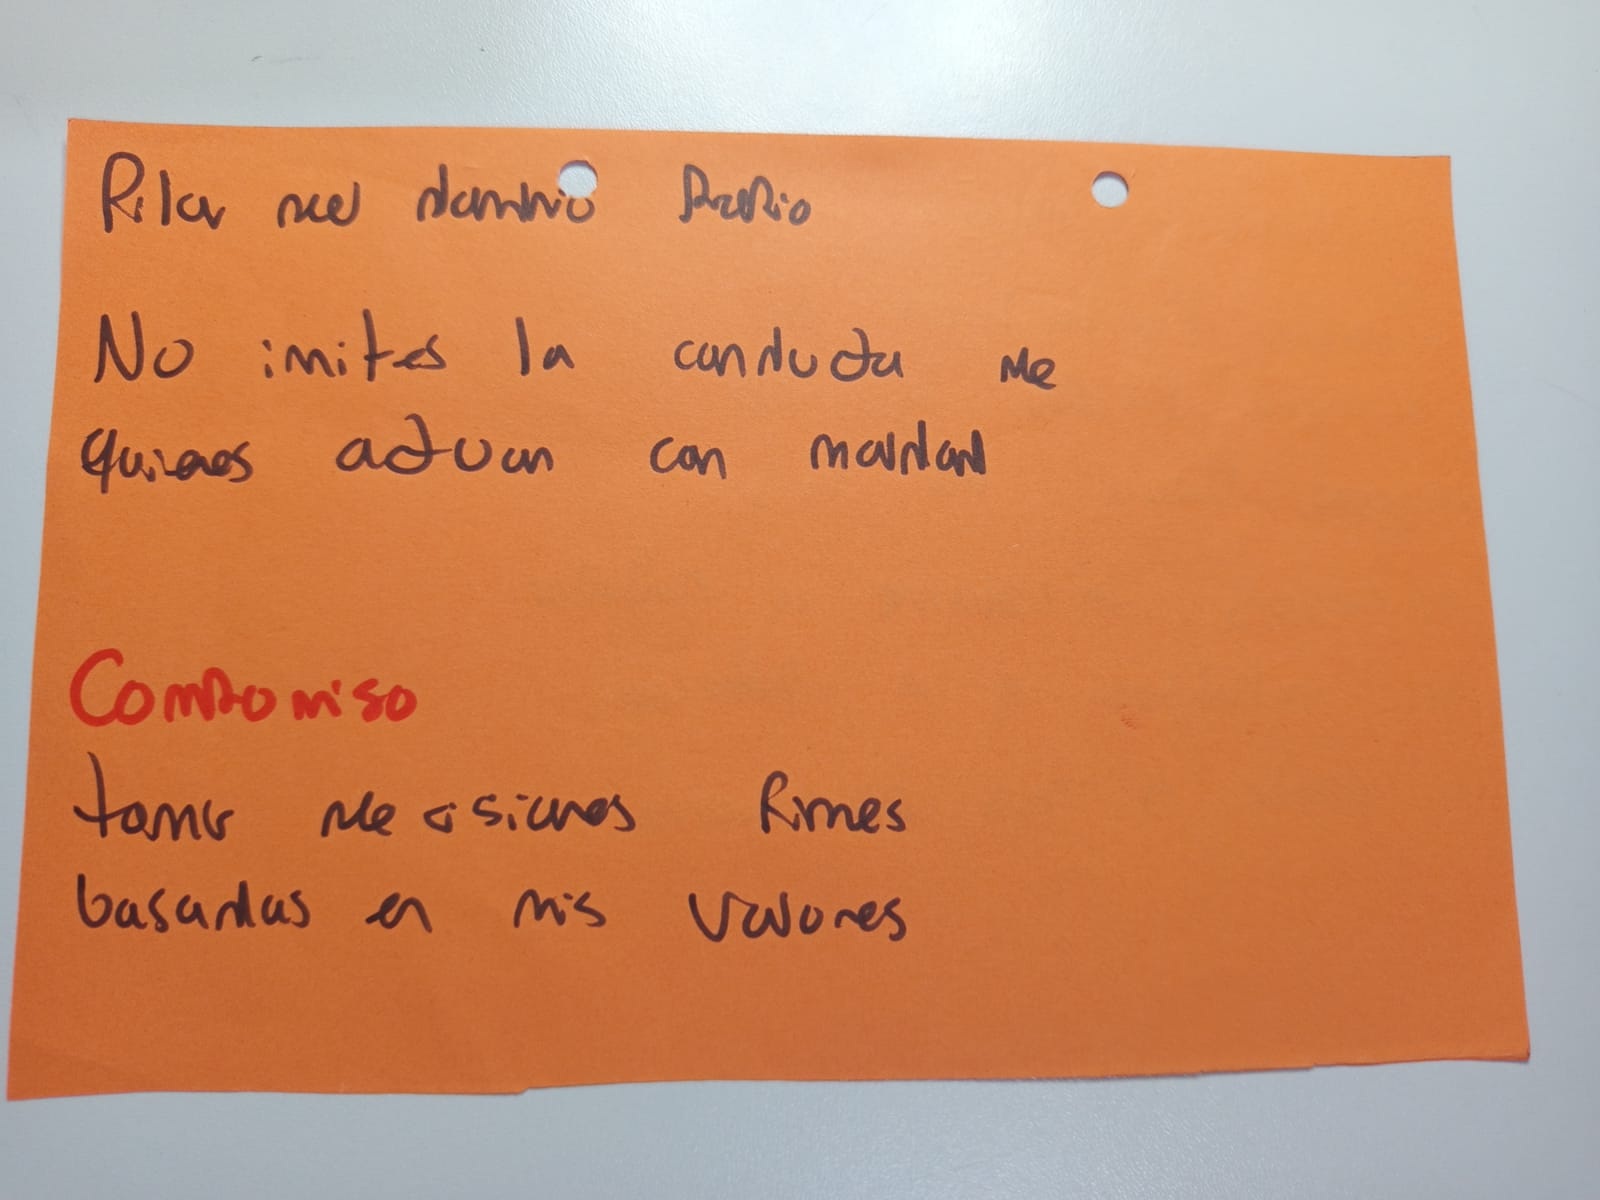 Pilar del dominio Propio
No imites la conducta de
quienes actuan con maldad
Compromiso
tomar decisiones firmes
basadas en mis valores